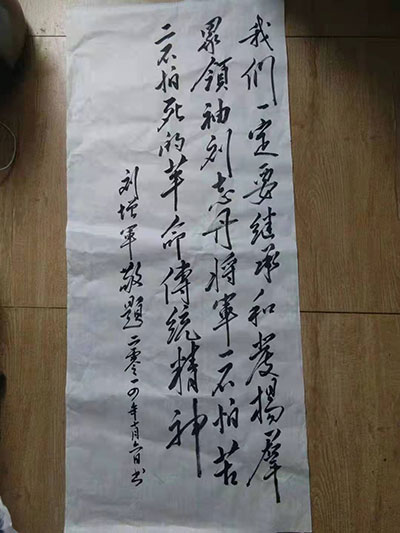 我們一定要继承和发揚羣
眾領袖刘志丹将軍一不怕苦
二不怕死的革命傳統精神
刘增軍敬題二零一四年十月六日书